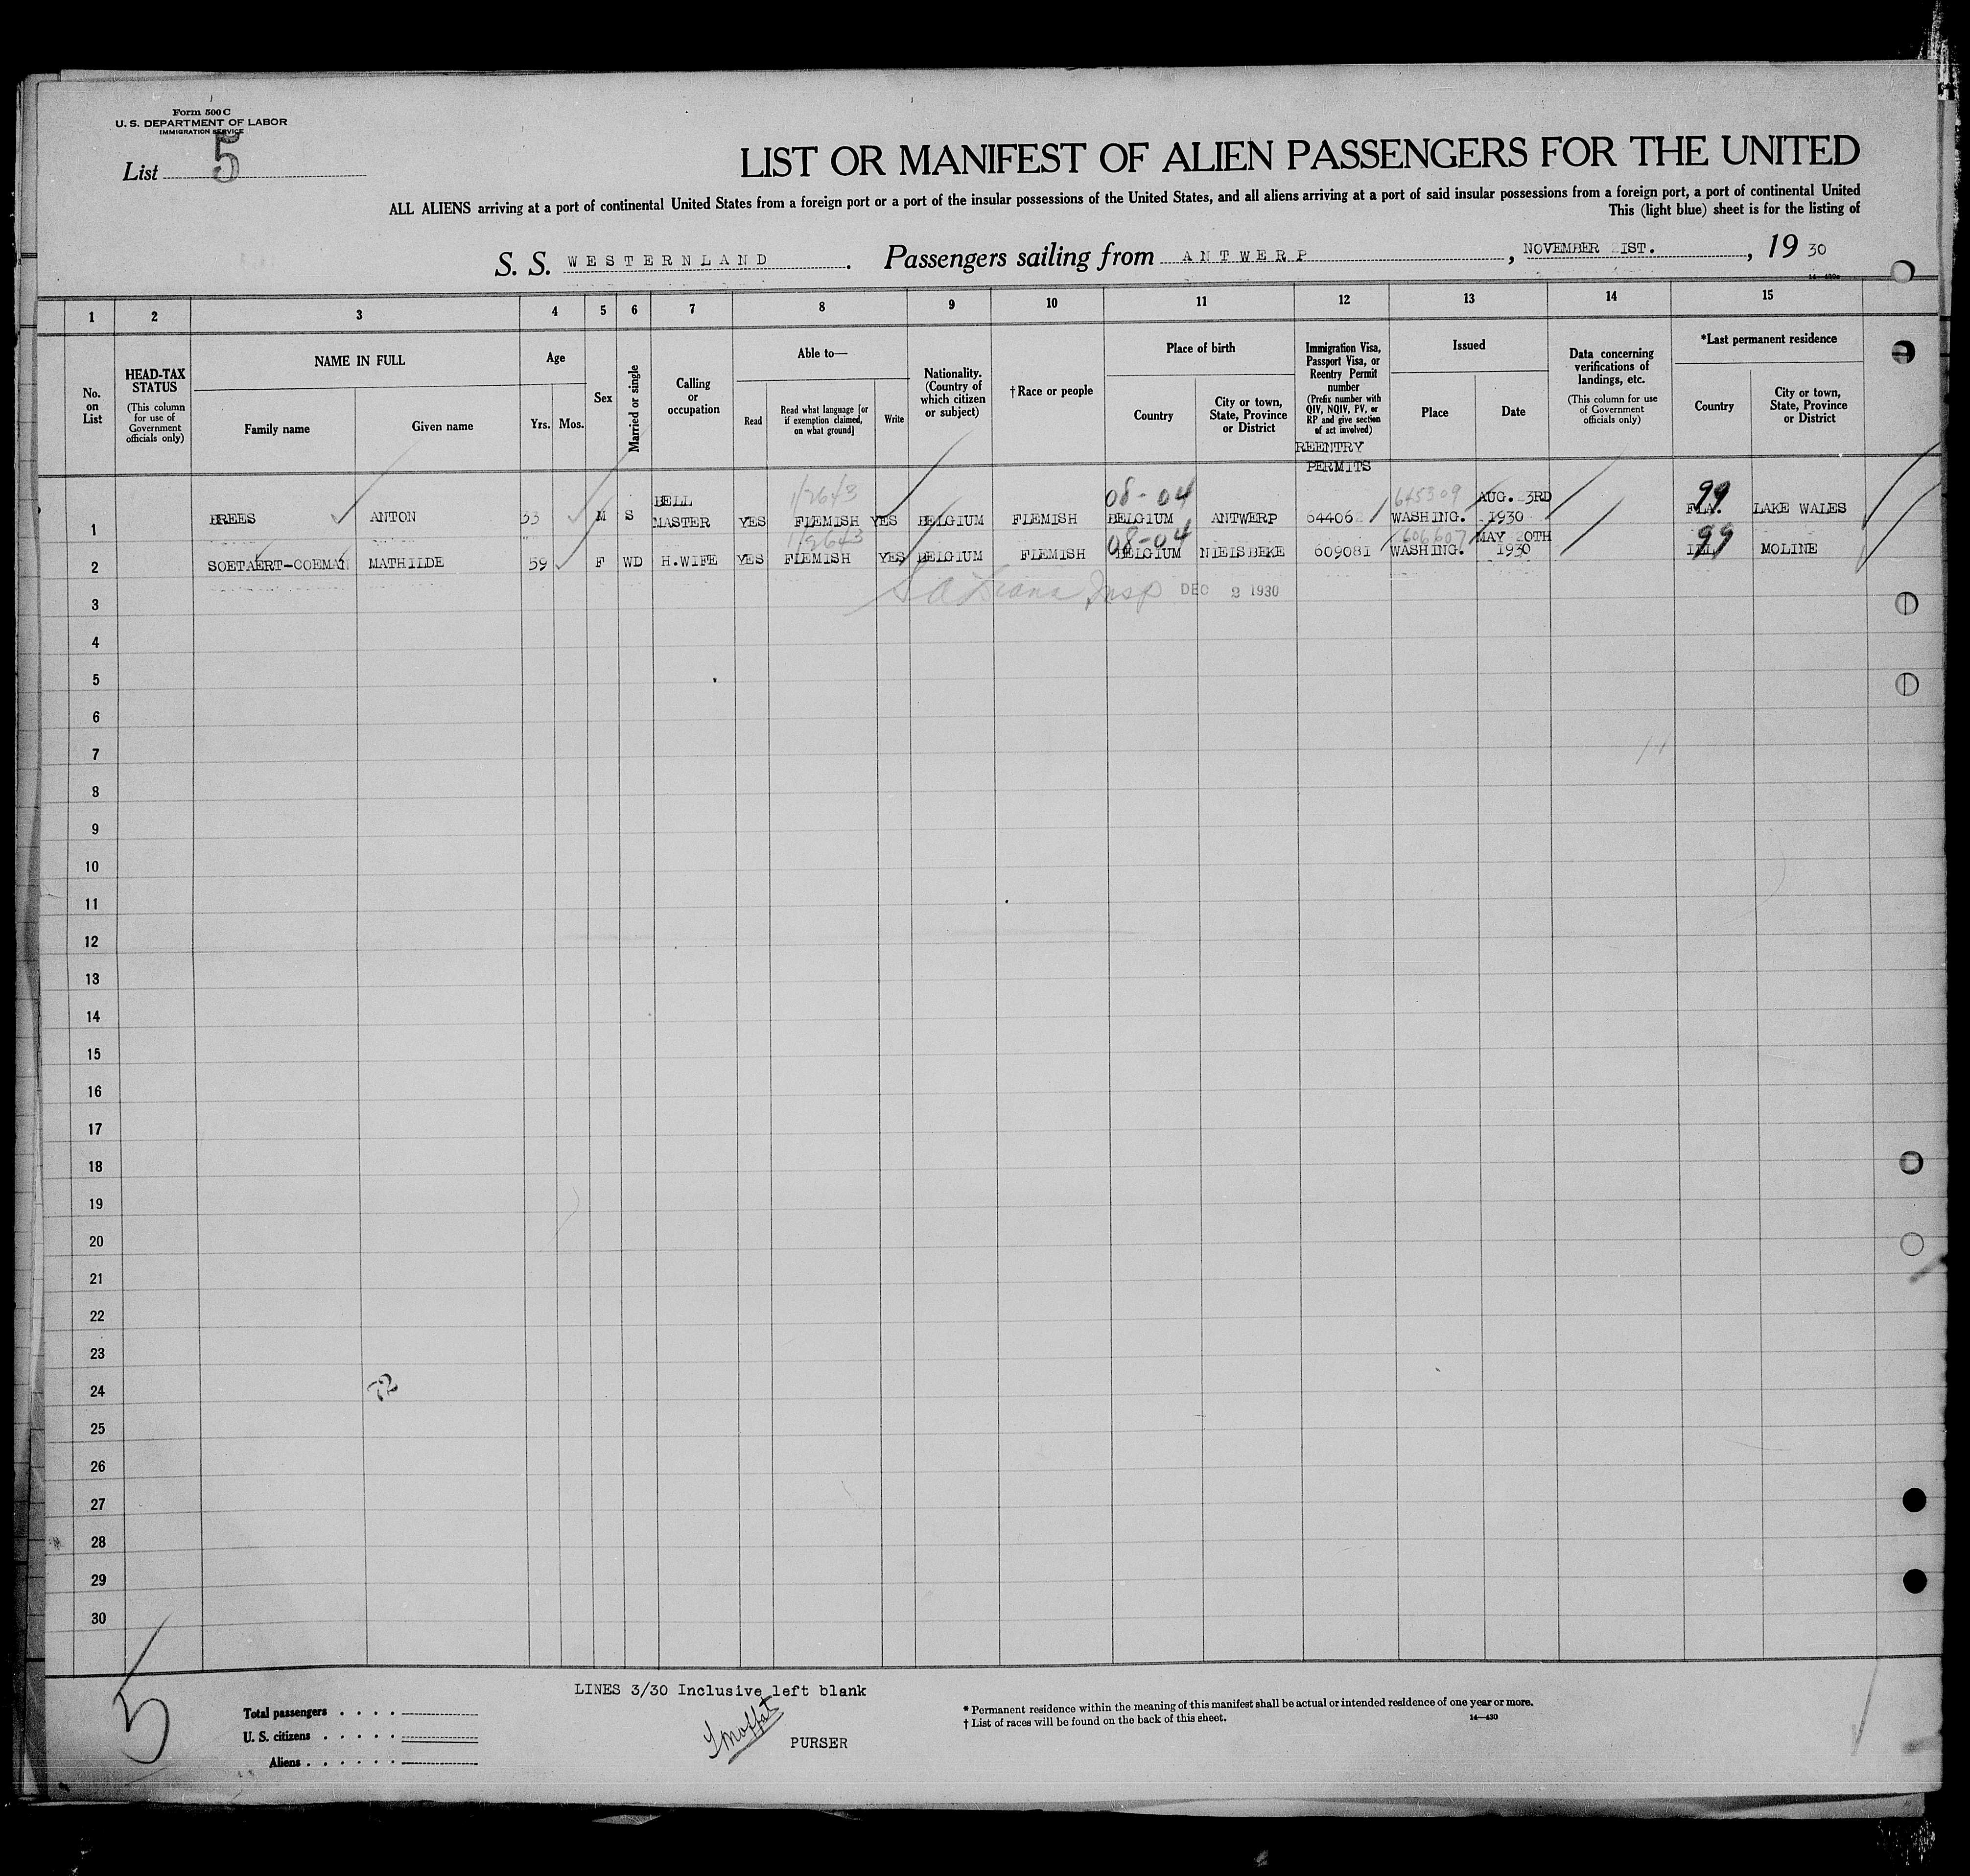 Form 500 C
U. S. DEPARTMENT OF LABOR
IMMIGRATION SERVICE
List 5
LIST OR MANIFEST OF ALIEN PASSENGERS FOR THE UNITED
ALL ALIENS arriving at a port of continental United States from a foreign port or a port of the insular possessions of the United States, and all aliens arriving at a port of said insular possessions from a foreign port, a port of continental United
This (light blue) sheet is for the listing of
S. S. WESTERNLAND. Passengers sailing from ANTWERP, NOVEMBER 21ST., 19 30
1 2 3 4 5 6 7 8 9 10 11 12 13 14 15
No. on List
HEAD-TAX STATUS
(This column for use of Government officials only)
NAME IN FULL
Family name
Given name
Age
Yrs. Mos.
Sex
Married or single
Calling or occupation
Able to—
Read
Read what language [or if exemption claimed, on what ground]
Write
Nationality. (Country of which citizen or subject)
†Race or people
Place of birth
Country
City or town, State, Province or District
Immigration Visa, Passport Visa, or Reentry Permit number
(Prefix number with QIV, NQIV, PV, or RP and give section of act involved)
REENTRY
PERMITS
Issued
Place
Date
Data concerning verifications of landings, etc.
(This column for use of Government officials only)
*Last permanent residence
Country
City or town, State, Province or District
1/2643 08-04 645309 99
1 BREES ANTON 33 M S BELL MASTER YES FLEMISH YES BELGIUM FLEMISH BELGIUM ANTWERP 644062 WASHING. AUG. 23RD 1930 FLA. LAKE WALES
1/2643 08-04 606607 99
2 SOETAERT-COEMAN MATHILDE 59 F WD H.WIFE YES FLEMISH YES BELGIUM FLEMISH BELGIUM NIEISBEKE 609081 WASHING. MAY 20TH 1930 ILL. MOLINE
3 Insp DEC 2 1930
4
5
6
7
8
9
10
11
12
13
14
15
16
17
18
19
20
21
22
23
24 72
25
26
27
28
29
30
5
LINES 3/30 Inclusive left blank
Total passengers
U. S. citizens
Aliens
Moffat
PURSER
* Permanent residence within the meaning of this manifest shall be actual or intended residence of one year or more.
† List of races will be found on the back of this sheet.
14—430